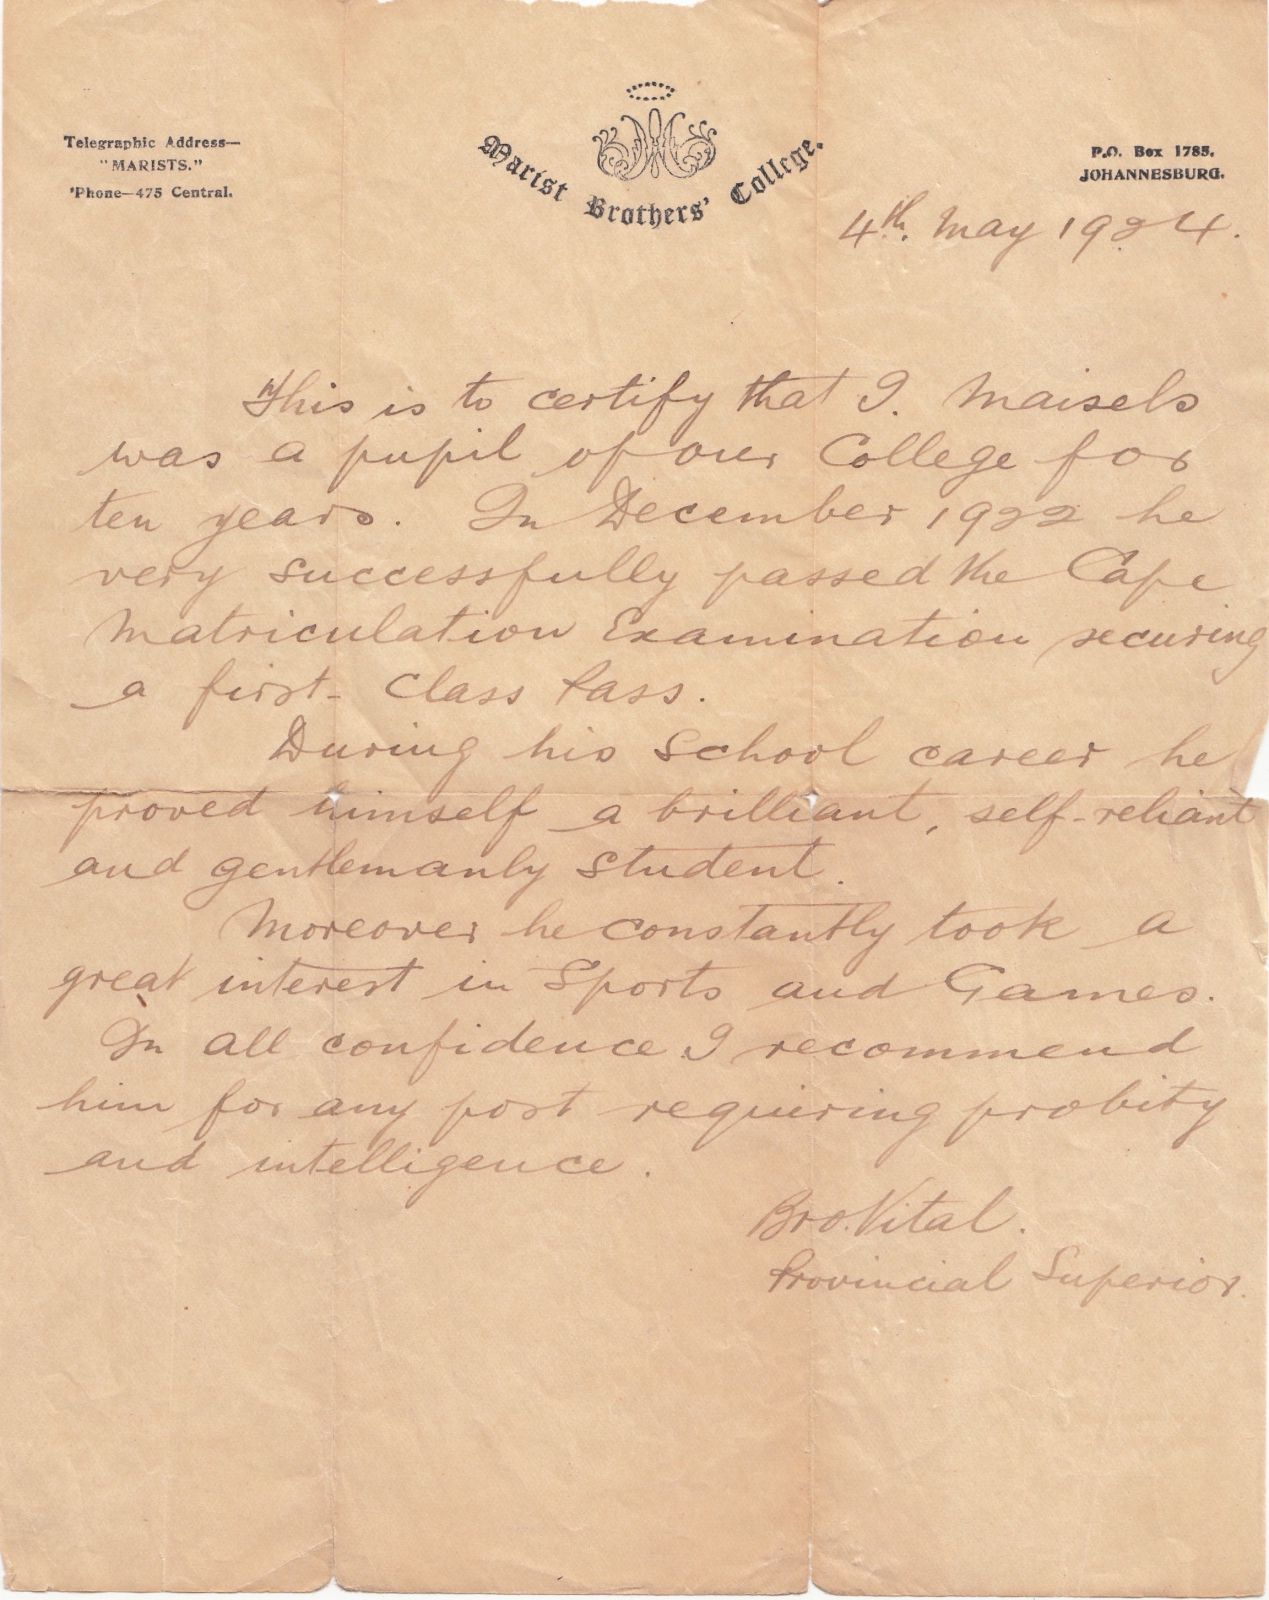 Telegraphic Address—
"MARISTS."
'Phone—475 Central.
Marist Brothers' College.
P.O. Box 1785,
JOHANNESBURG.
4th. May 1924.
This is to certify that I. Maisels
was a pupil of our College for
ten years. In December 1922 he
very successfully passed the Cape
Matriculation Examination securing
a first-Class Pass.
During his School career he
proved himself a brilliant, self-reliant
and gentlemanly student.
Moreover he constantly took a
great interest in Sports and Games.
In all confidence I recommend
him for any post requiering probity
and intelligence.
Bro. Vital.
Provincial Superior.